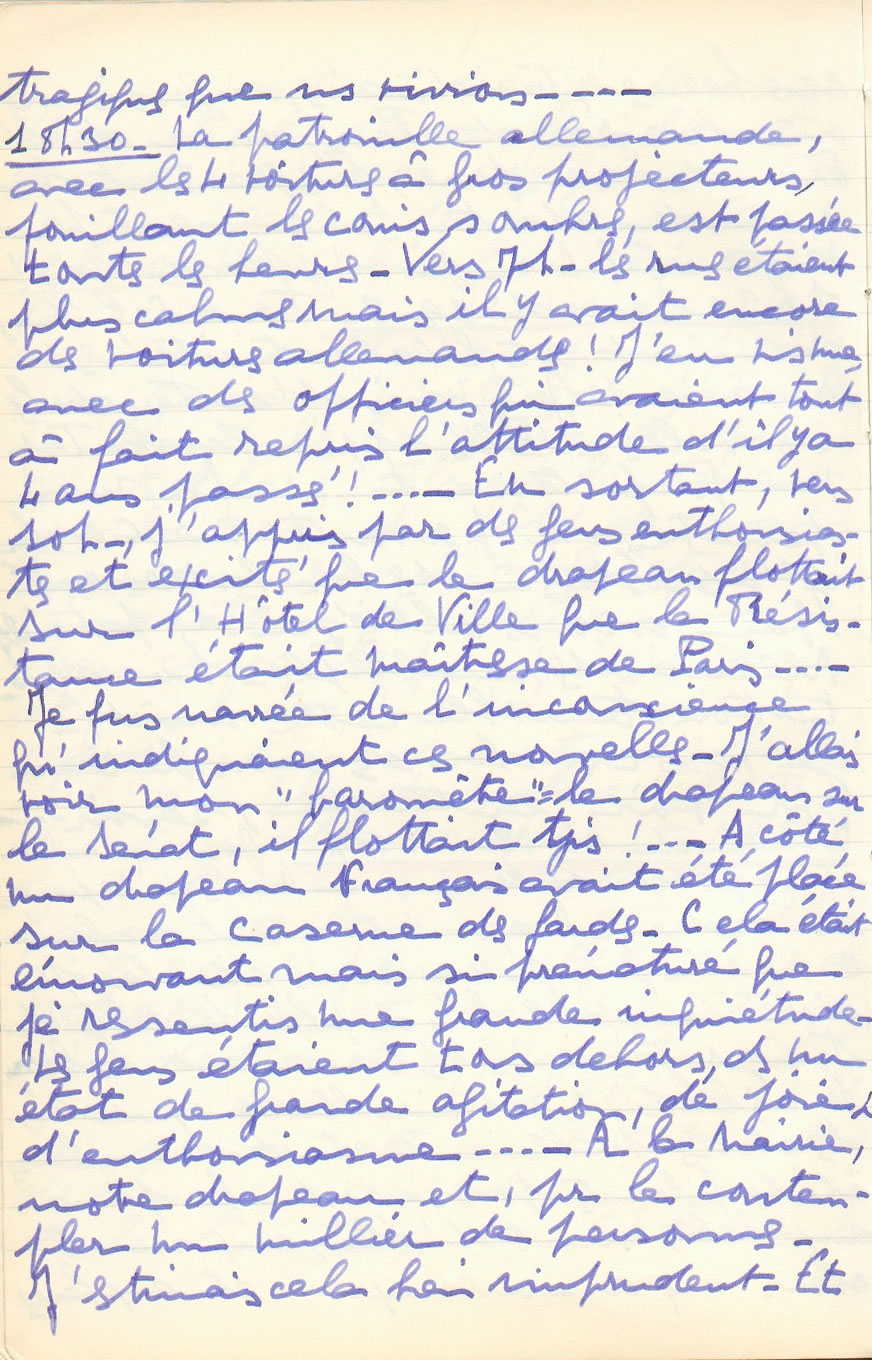 tragiques que ns vivions----
18h30_ La patrouille allemande,
avec les 4 voitures à gros projecteurs,
fouillant les coins sombres, est passée
toutes les heures_ Vers 7h_ les rues étaient
plus calmes mais il y avait encore
des voitures allemandes! J'en vis une,
avec des officiers qui avaient tout
à fait repris l'attitude d'il y a
4 ans passés!.... En sortant, vers
10h_, j'appris par des gens enthousias-
tes et excités que le drapeau flottait
sur l'Hôtel de Ville que la Résis-
tance était maîtresse de Paris....
Je fus navrée de l'inconscience
qu'indiquaient ces nouvelles_ J'allais
voir mon "baromètre"= le drapeau sur
le Sénat, il flottait tjs!.... A côté
un drapeau Français avait été placé
sur la Caserne des gardes_ Cela était
émouvant mais si prématuré que
je ressentis une grande inquiétude_
Les gens étaient tous dehors, ds un
état de grande agitation, de joie,
d'enthousiasme.---- A la Mairie,
notre drapeau et, pr le contem-
pler un millier de personnes_
J'estimais cela bien imprudent_ Et